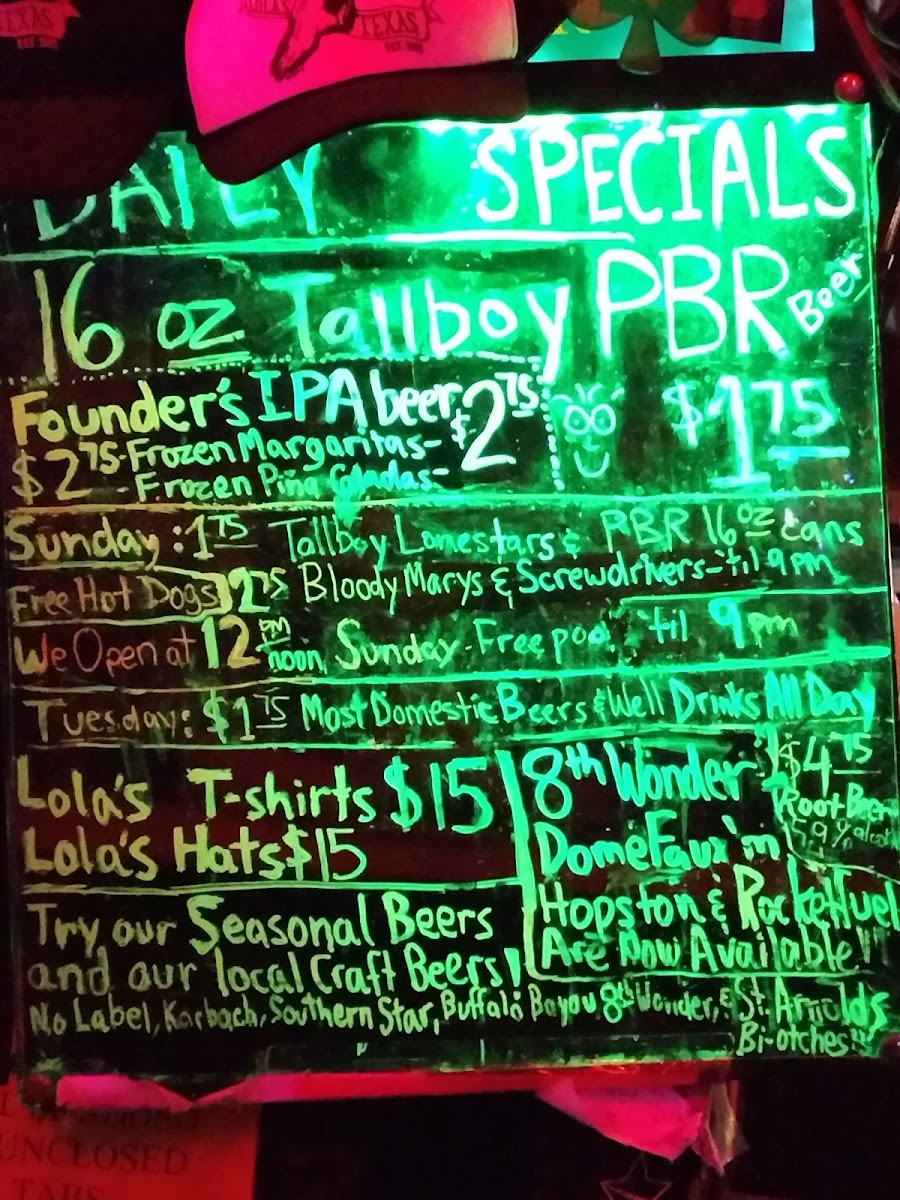 TEXAS
LOLA'S TEXAS
DAILY SPECIALS
16 oz Tallboy PBR Beer
$1.75
Founder's IPA beer $2.75
$2.75-Frozen Margaritas-
-Frozen Piña Coladas-
Sunday: 1.75 Tallboy Lonestars & PBR 16oz cans
Free Hot Dogs 2.75 Bloody Marys & Screwdrivers-'til 9pm
We Open at 12 pm noon, Sunday-Free pool 'til 9pm
Tuesday: $1.75 Most Domestic Beers & Well Drinks All Day
Lola's T-shirts $15
Lola's Hats $15
8th Wonder
Dome Faux'm
Hopston & Rocketfuel
Are Now Available!!
$4.75
Root Beer
5.9%
Try our Seasonal Beers
and our local Craft Beers!
No Label, Karbach, Southern Star, Buffalo Bayou 8th Wonder, & St. Arnolds
Bi-otches!!!
UNCLOSED
TABS